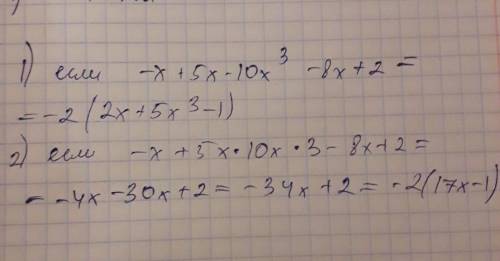 1) если -x + 5x - 10x³ - 8x + 2 =
= -2 (2x + 5x³ - 1)
2) если -x + 5x · 10x · 3 - 8x + 2 =
= -4x - 30x + 2 = -34x + 2 = -2(17x - 1)